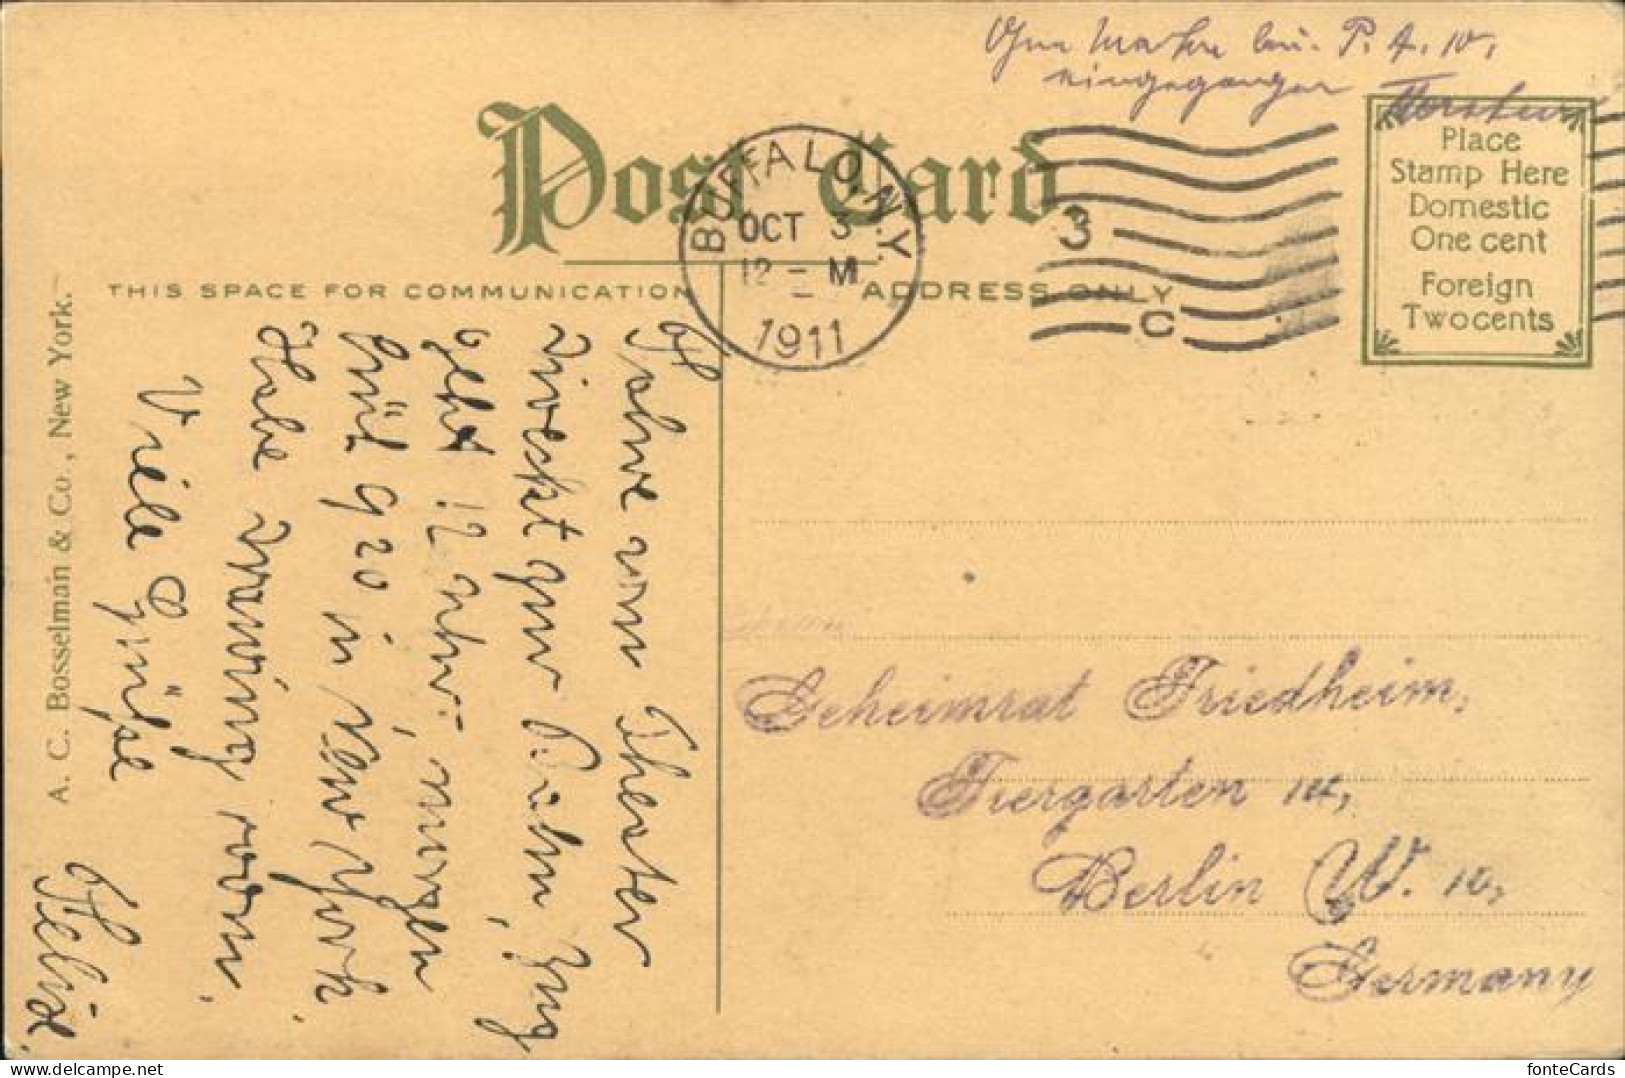 Ohne Marke bei P. A. 10,
eingegangen
Post Card.
BUFFALO, N.Y.
OCT 3
12 - M
1911
3
C
Place
Stamp Here
Domestic
One cent
Foreign
Two cents
THIS SPACE FOR COMMUNICATION
ADDRESS ONLY
A. C. Bosselman & Co., New York.
Fahre vom Theater
direkt zur Bahn, Zug
geht 12 Uhr, morgen
früh 9 20 in New York.
Habe wenig vom.
Viele Grüße
Geheimrat Friedheim,
Tiergarten
Berlin W. 10,
Germany
fonteCards